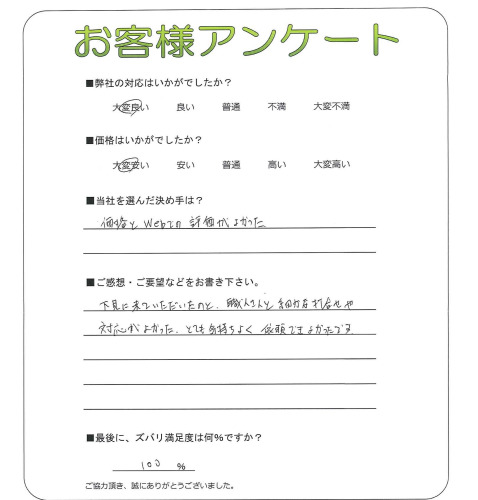 お客様アンケート
■弊社の対応はいかがでしたか？
大変良い 良い 普通 不満 大変不満
■価格はいかがでしたか？
大変安い 安い 普通 高い 大変高い
■当社を選んだ決め手は？
価格とWebでの評価がよかった
■ご感想・ご要望などをお書き下さい。
下見に来ていただいたのと、職人さんと細かな打合せや
対応がよかった。とても気持ちよく依頼できよかったです
■最後に、ズバリ満足度は何%ですか？
100 %
ご協力頂き、誠にありがとうございました。